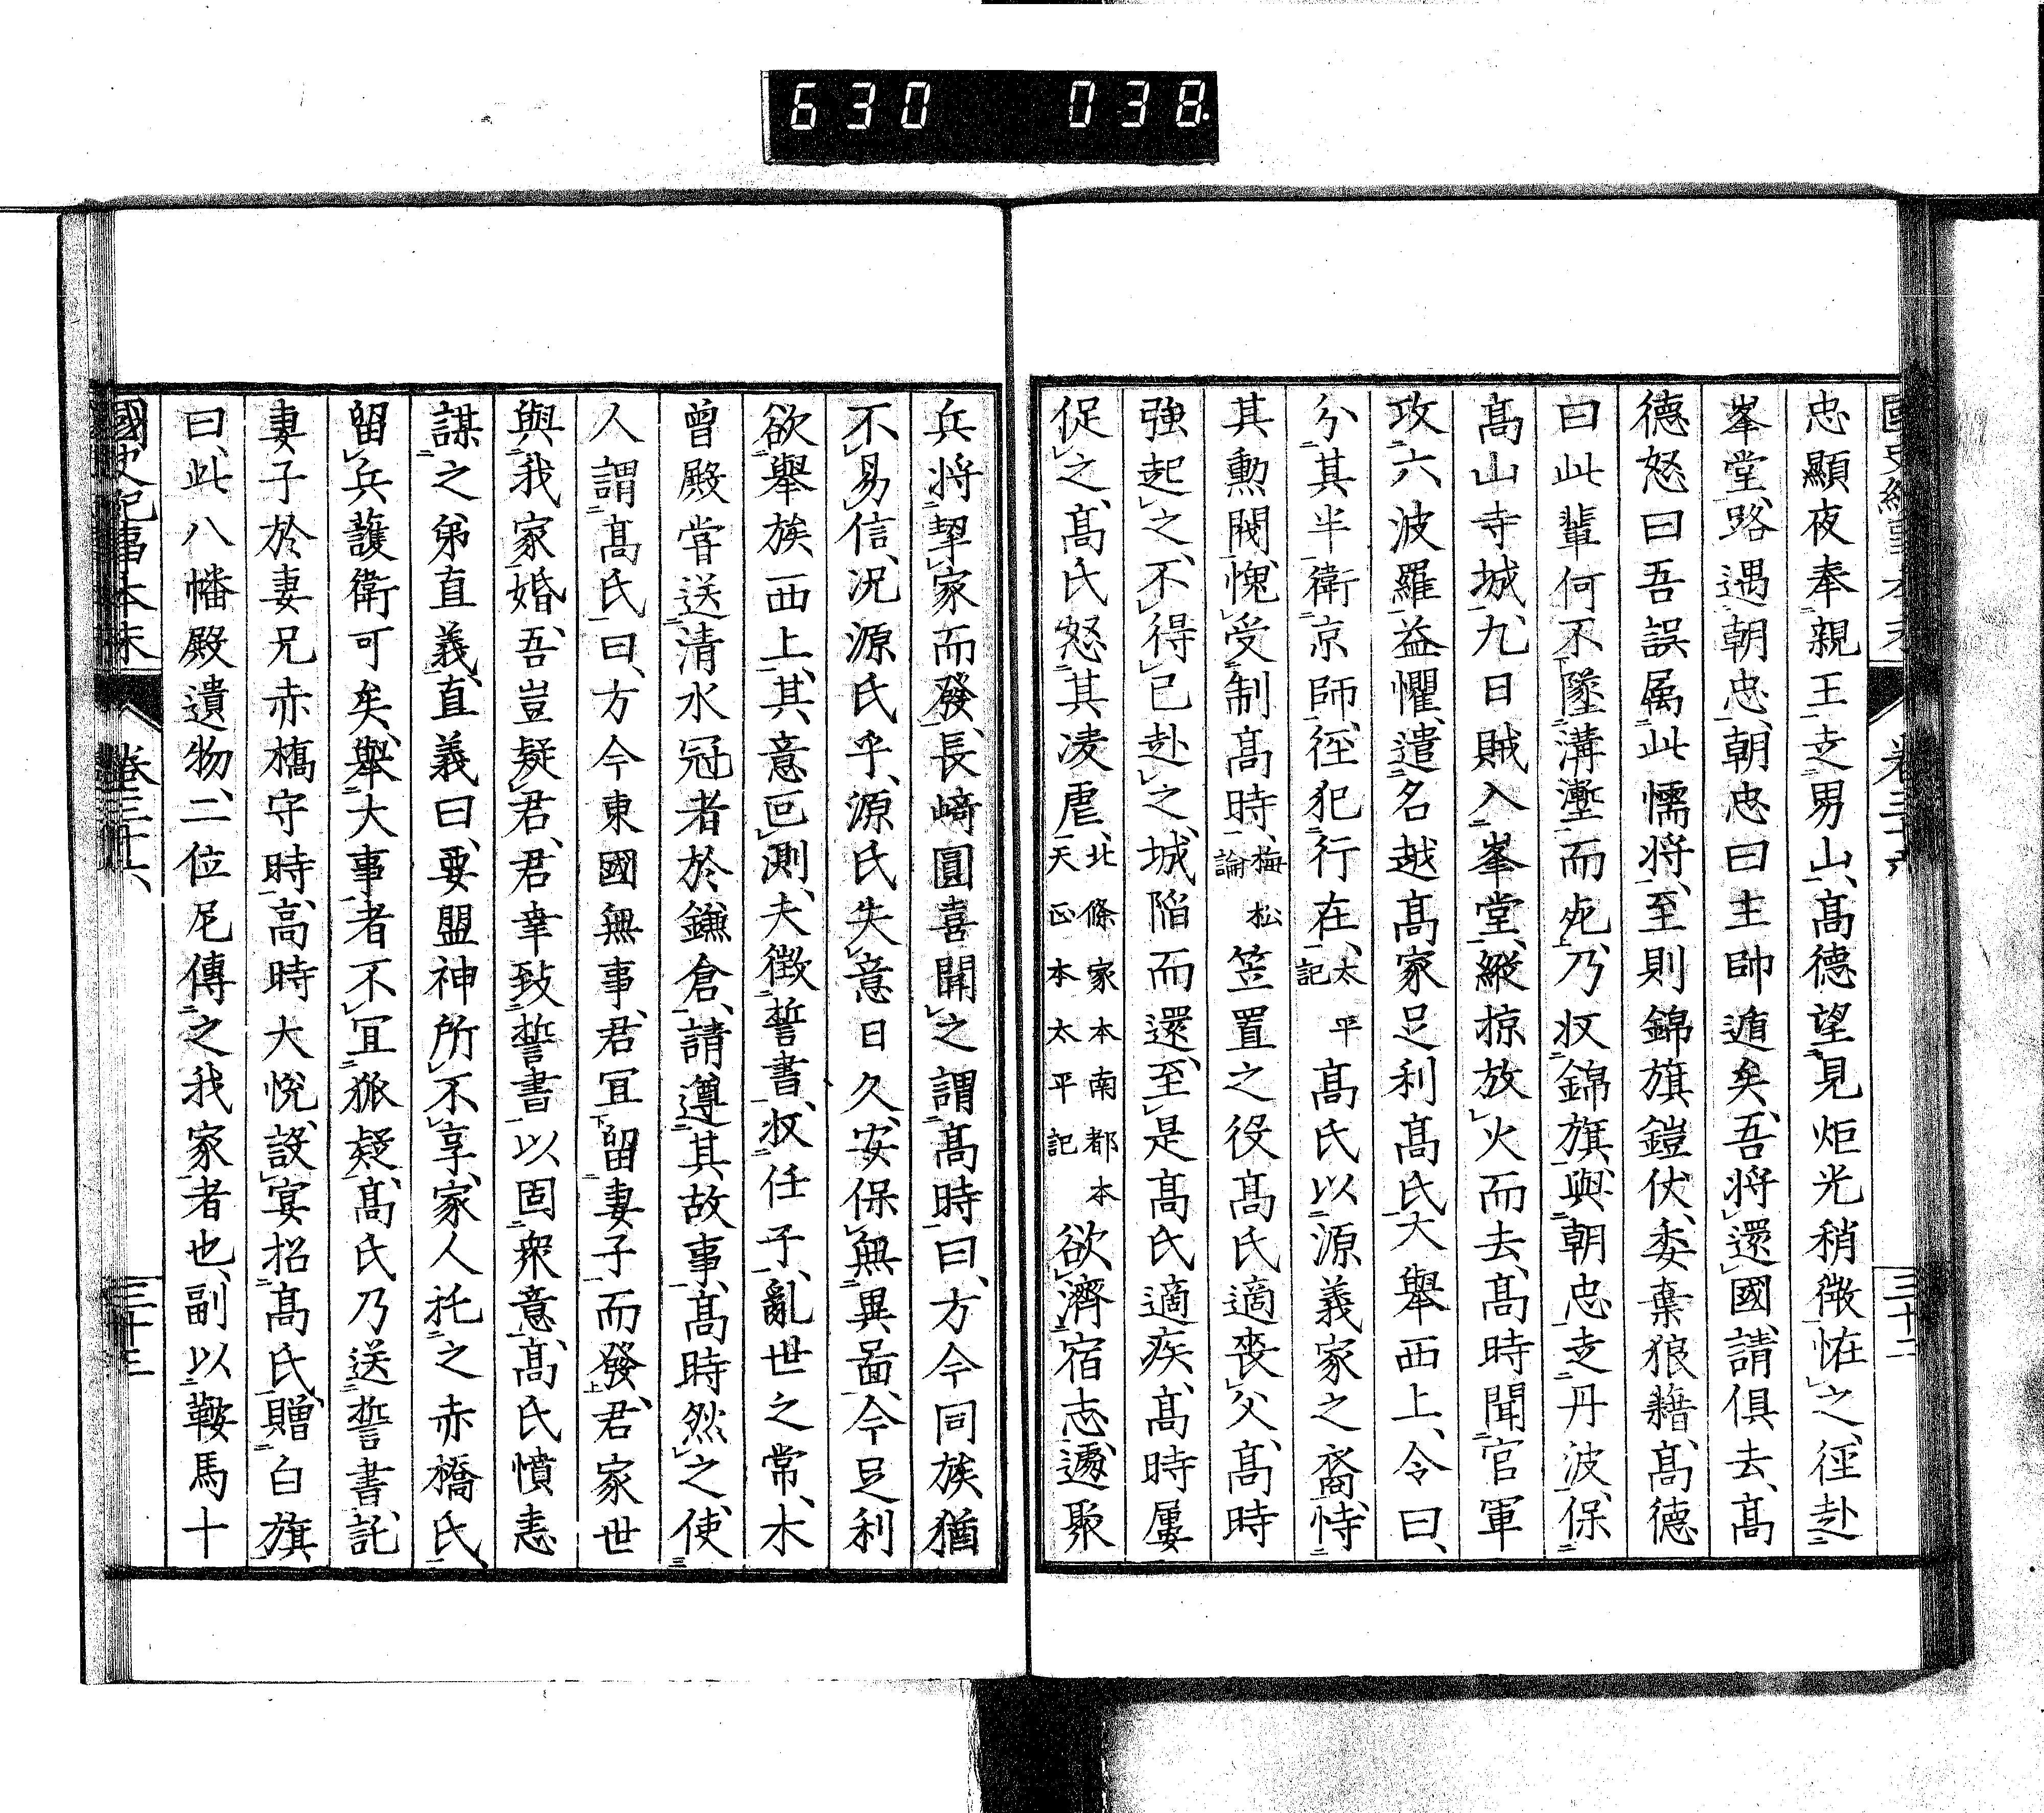 630 038
忠顯夜奉親王走男山、高德望見炬光稍微、恠之、徑赴
峯堂、路遇朝忠、朝忠曰主帥遁矣、吾將還國、請俱去、高
德怒曰吾誤属此懦将、至則錦旗鎧伏、委棄狼藉、高德
曰此輩何不墜溝壍而死、乃収錦旗、與朝忠走丹波、保
高山寺城、九日賊入峯堂、縱掠放火而去、高時聞官軍
攻六波羅益懼、遣名越高家足利高氏大舉西上、令曰、
分其半衛京師、徑犯行在、太平記高氏以源義家之裔、恃
其勲閥、愧受制高時、梅松論笠置之役高氏適喪父、高時
強起之、不得已赴之、城陷而還、至是高氏適疾、高時屢
促之、高氏怒其凌虐、北條家本南都本天正本太平記欲濟宿志、遽聚
兵将挈家而發、長﨑圓喜聞之謂高時曰、方今同族猶
不易信、況源氏乎、源氏失意日久、安保無異啚、今足利
欲舉族西上、其意叵測、夫徴誓書、収任子、亂世之常、木
曾殿嘗送清水冠者於鎌倉、請遵其故事、高時然之、使
人謂高氏曰、方今東國無事、君宜留妻子而發、君家世
與我家婚、吾豈疑君、君幸致誓書以固衆意、高氏憤恚
謀之弟直義、直義曰、要盟神所不享、家人托之赤橋氏、
留兵護衛可矣、舉大事者不宜狐疑、高氏乃送誓書、託
妻子於妻兄赤橋守時、高時大悅、設宴招高氏、贈白旗
曰、此八幡殿遺物、二位尼傳之我家者也、副以鞍馬十
國史紀事本末 卷三十六、 三十三